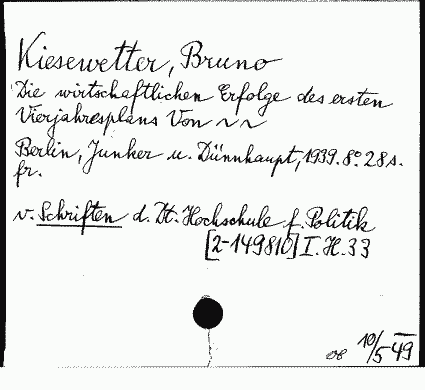 Kiesewetter, Bruno
Die wirtschaftlichen Erfolge des ersten
Vierjahresplans Von ~ ~
Berlin, Junker u. Dünnhaupt, 1939. 8° 28 s.
fr.
v. Schriften d. Dt. Hochschule f. Politik
[2-149810] I. H. 33
10/5 49